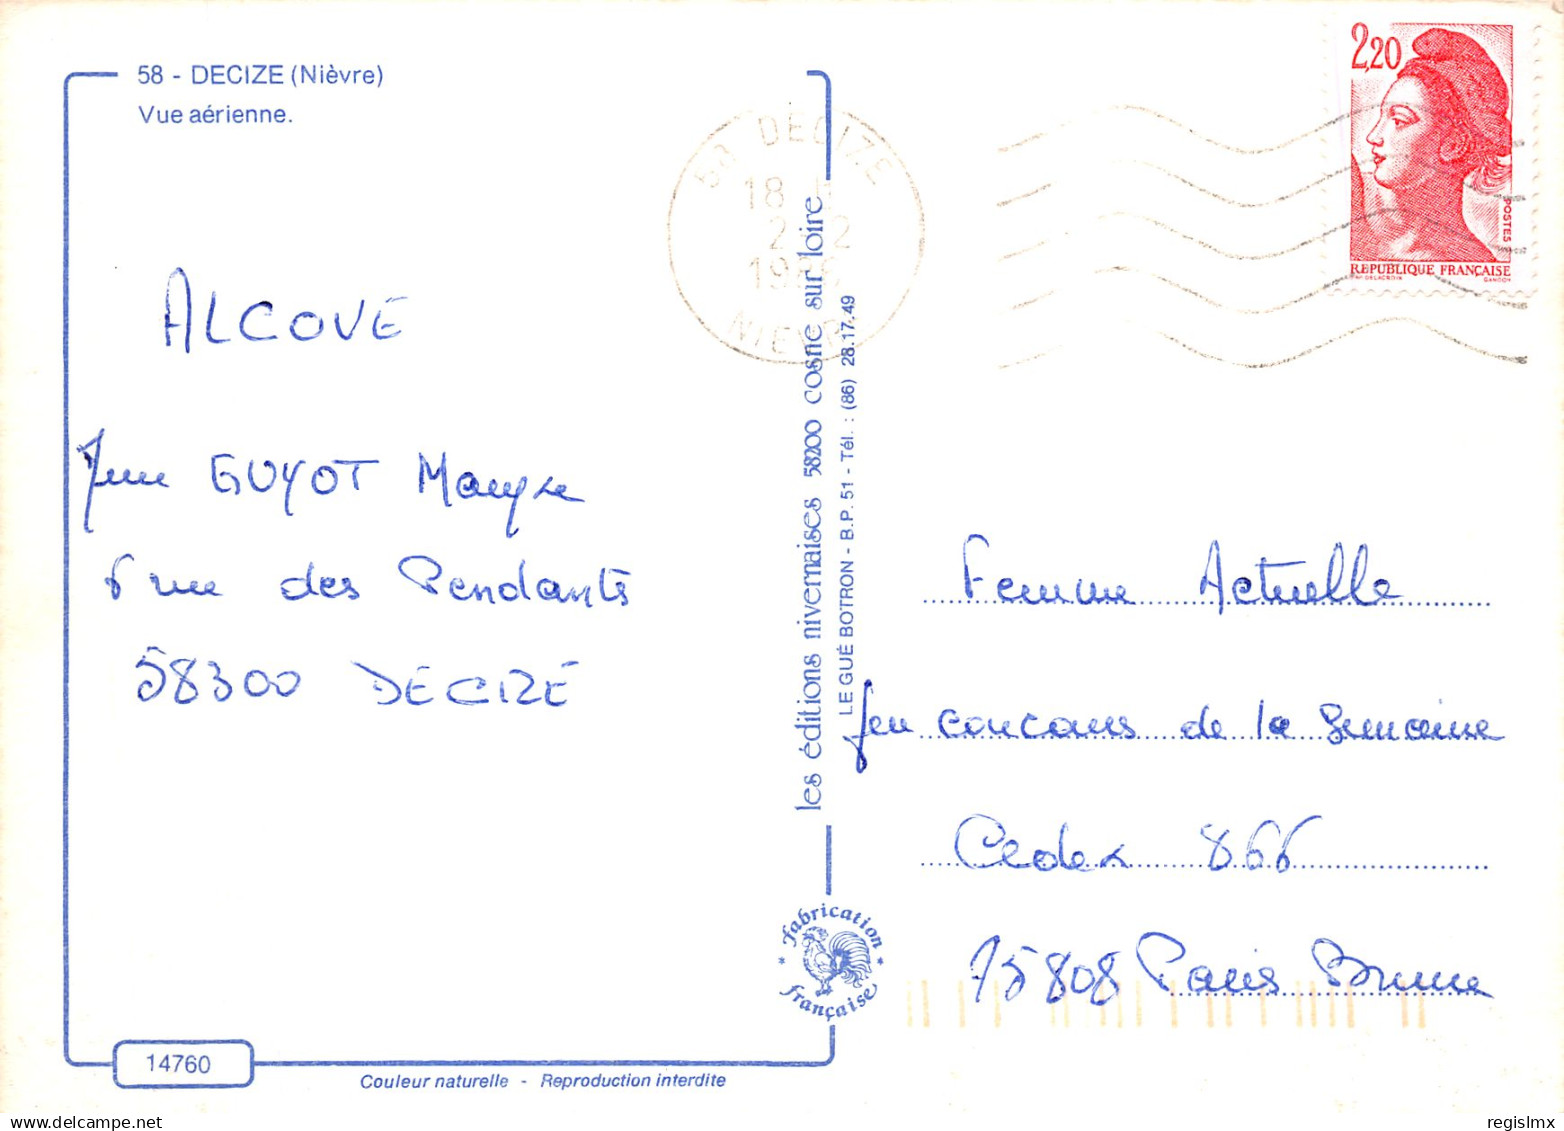 58 - DECIZE (Nièvre)
Vue aérienne.
ALCOVE
Mme GUYOT Maryse
6 rue des Pendants
58300 DECIZE
les éditions nivernaises 58200 cosne sur loire
LE GUÉ BOTRON - B.P. 51 - Tél. : (86) 28.17.49
DECIZE
18
NIEVRE
2,20
POSTES
REPUBLIQUE FRANÇAISE
DELACROIX GANDON
Femme Actuelle
Jeu concours de la Semaine
Cedex 866
75808 Paris Brune
Fabrication Française
14760
Couleur naturelle - Reproduction interdite
regislmx